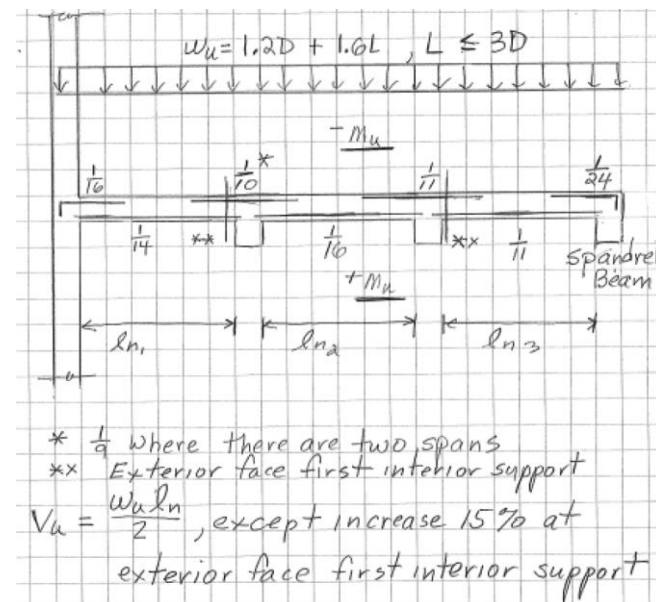 Wu = 1.2D + 1.6L , L ≤ 3D
- Mu
1/16 1/10 * 1/11 1/24
1/14 ** 1/16 ** 1/11 Spandrel
Beam
+ Mu
ln1 ln2 ln3
* 1/9 where there are two spans
** Exterior face first interior support
Vu = Wu ln / 2 , except increase 15% at
exterior face first interior support